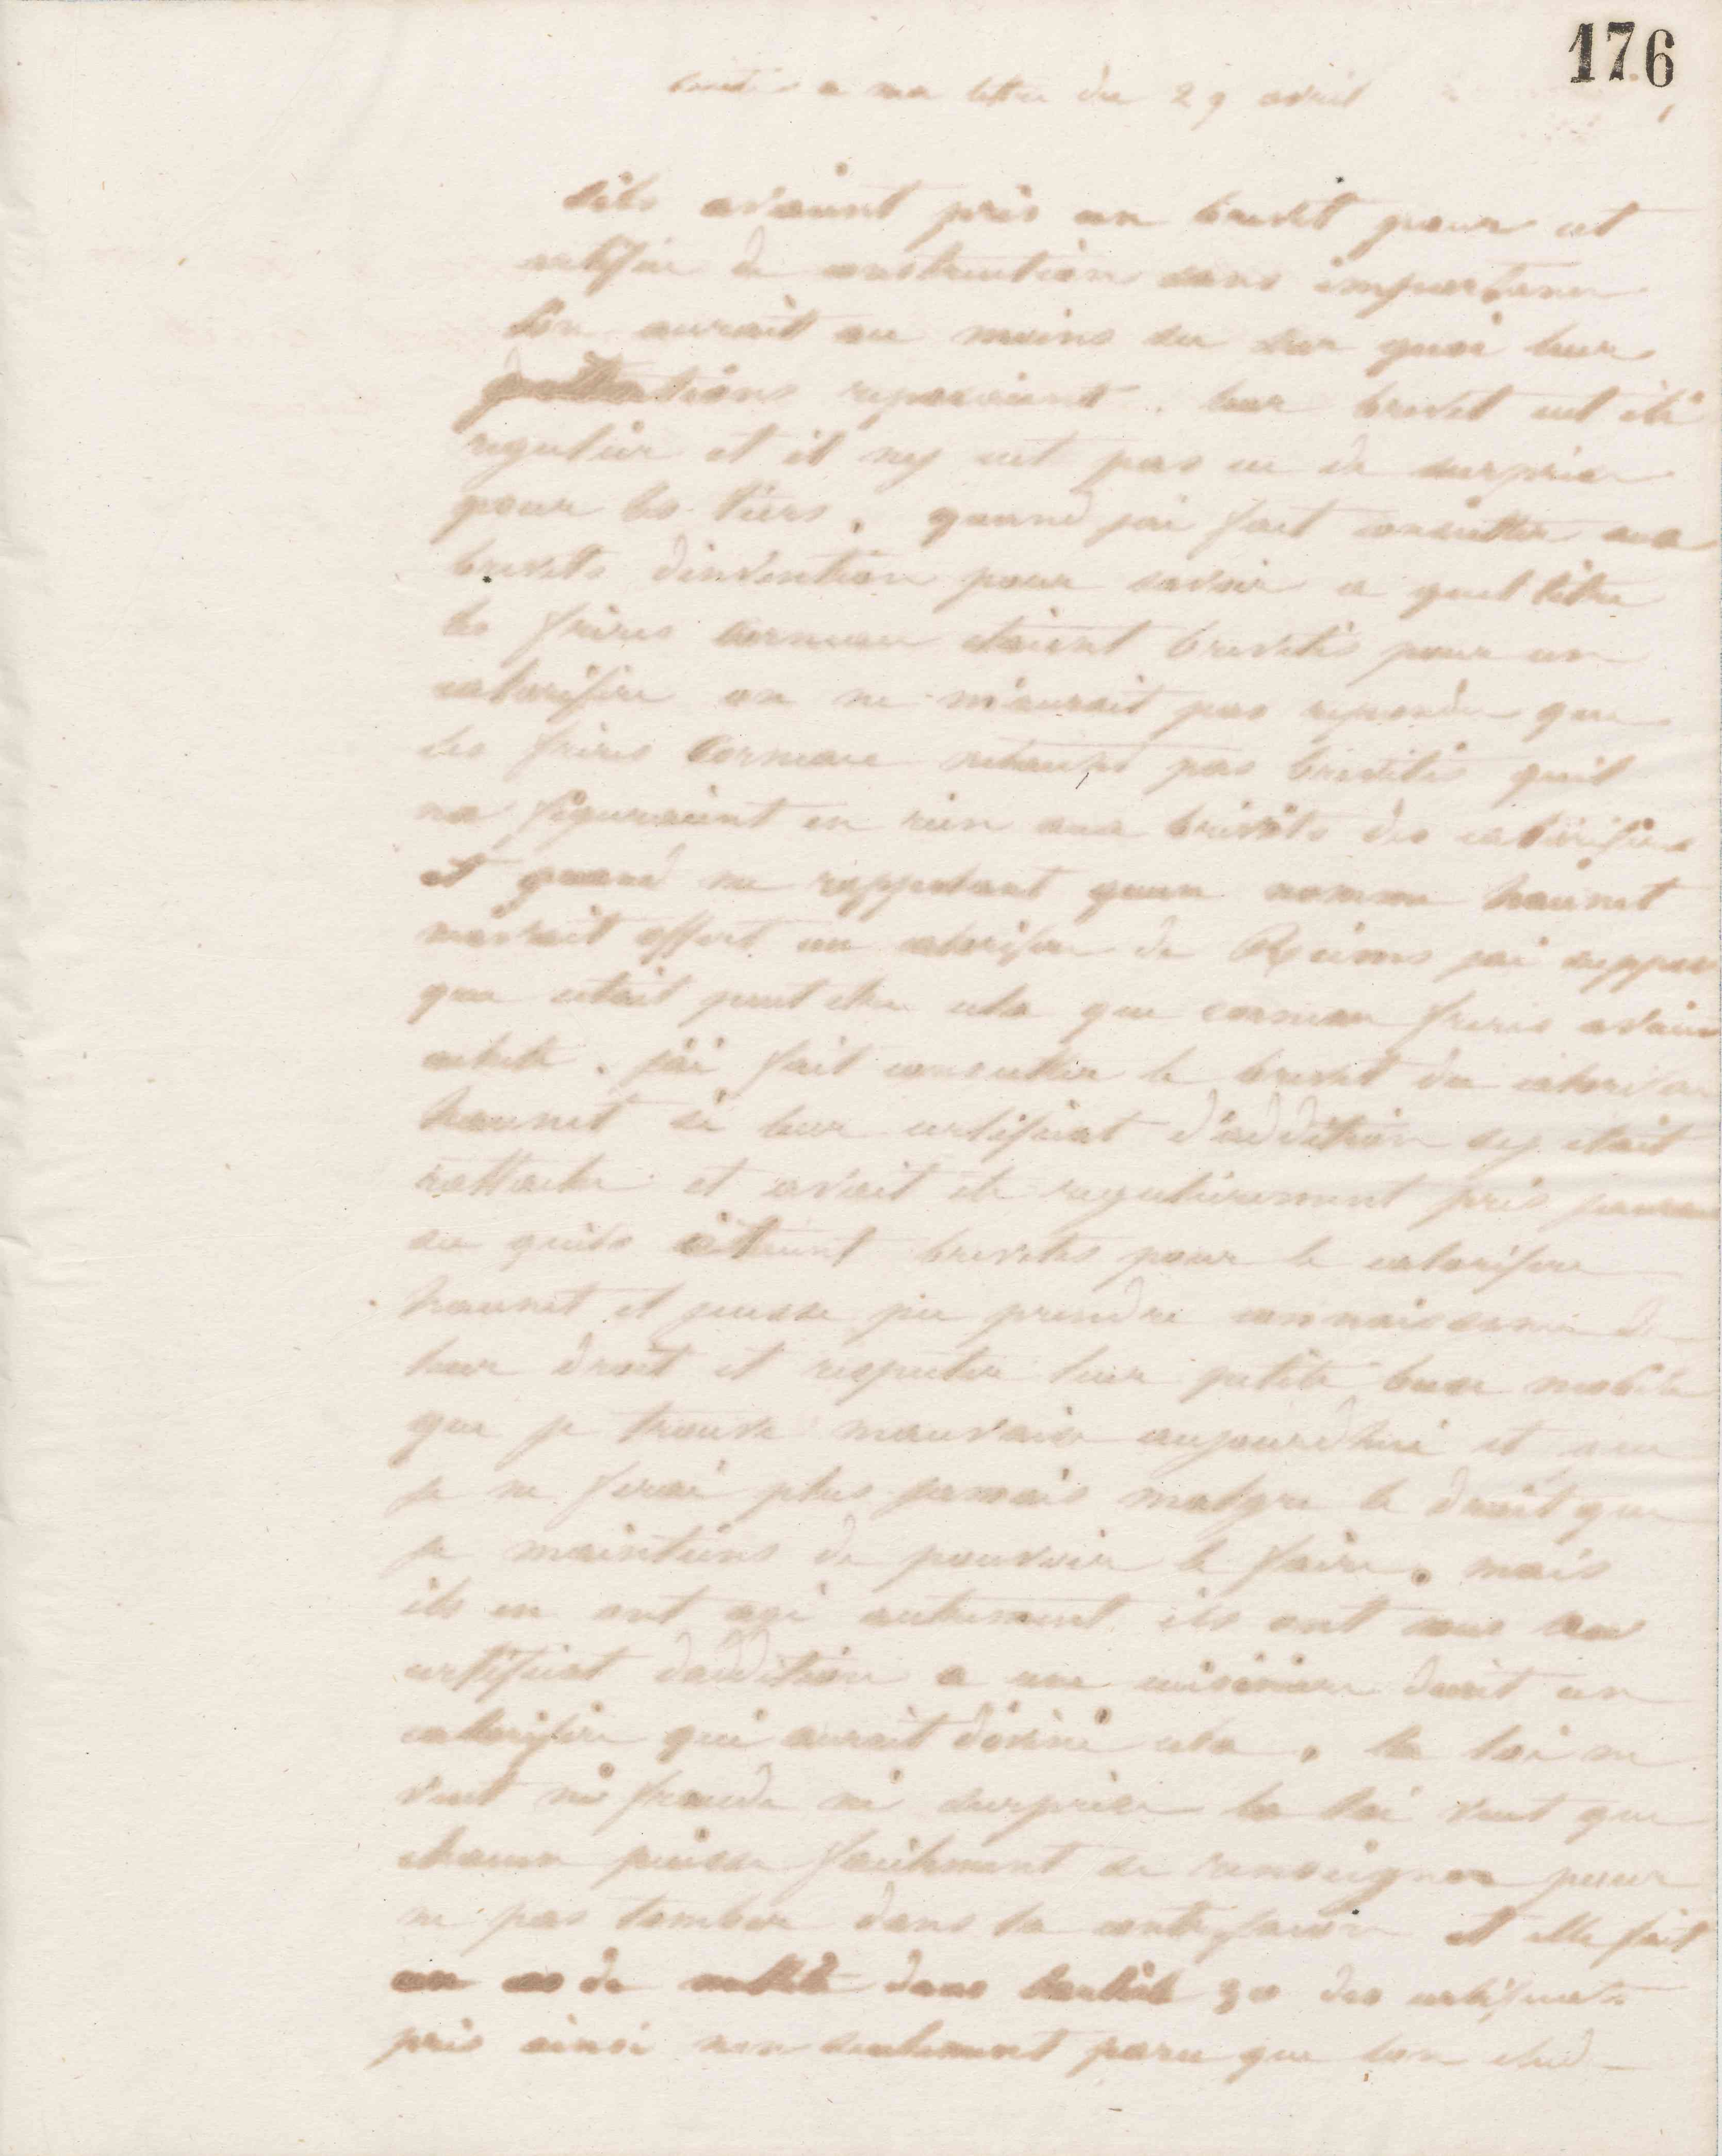 176
a ma lettre du 29 avril
sils avaient pris un brevet pour cet
artifice de construction sans importance
lon aurait au moins su sur quoi leurs
reposaient. leur brevet eut été
regulier et il ny eut pas eu de surprise
pour les tiers. quand jai fait consulter aux
brevets dinvention pour savoir a quel titre
les frères Corneau etaient brevetés pour un
calorifère on ne m'aurait pas repondu que
les frères Corneau netaient pas brevetés quil
ne figuraient en rien aux brevets des calorifères
et quand me rappelant quun nommé haunet
m'avait offert un calorifère de Reims jai supposé
que cetait peut etre cela que corneau freres avaient
acheté. j'ai fait consulter le brevet du calorifère
haunet si leur certificat d'addition sy etait
rattaché et avait ete regulièrement pris jaurais
su quils étaient brevetés pour le calorifère
haunet et jeusse pu prendre connaissance de
leur droit et respecter leur petite buse mobile
que je trouve mauvaise aujourdhui et que
je ne ferai plus jamais malgre le droit que
je maintiens de pouvoir le faire. mais
ils en ont agi autrement ils ont mis un
certificat daddition a une cuisinière dont un
calorifère qui aurait déviné cela. la loi ne
veut ni fraude ni surprise la loi veut que
chacun puisse facilement se renseigner pour
ne pas tomber dans la contrefacon et elle fait
un cas de nullité dans larticle 30 des certificats
pris ainsi non seulement parce que lon elud